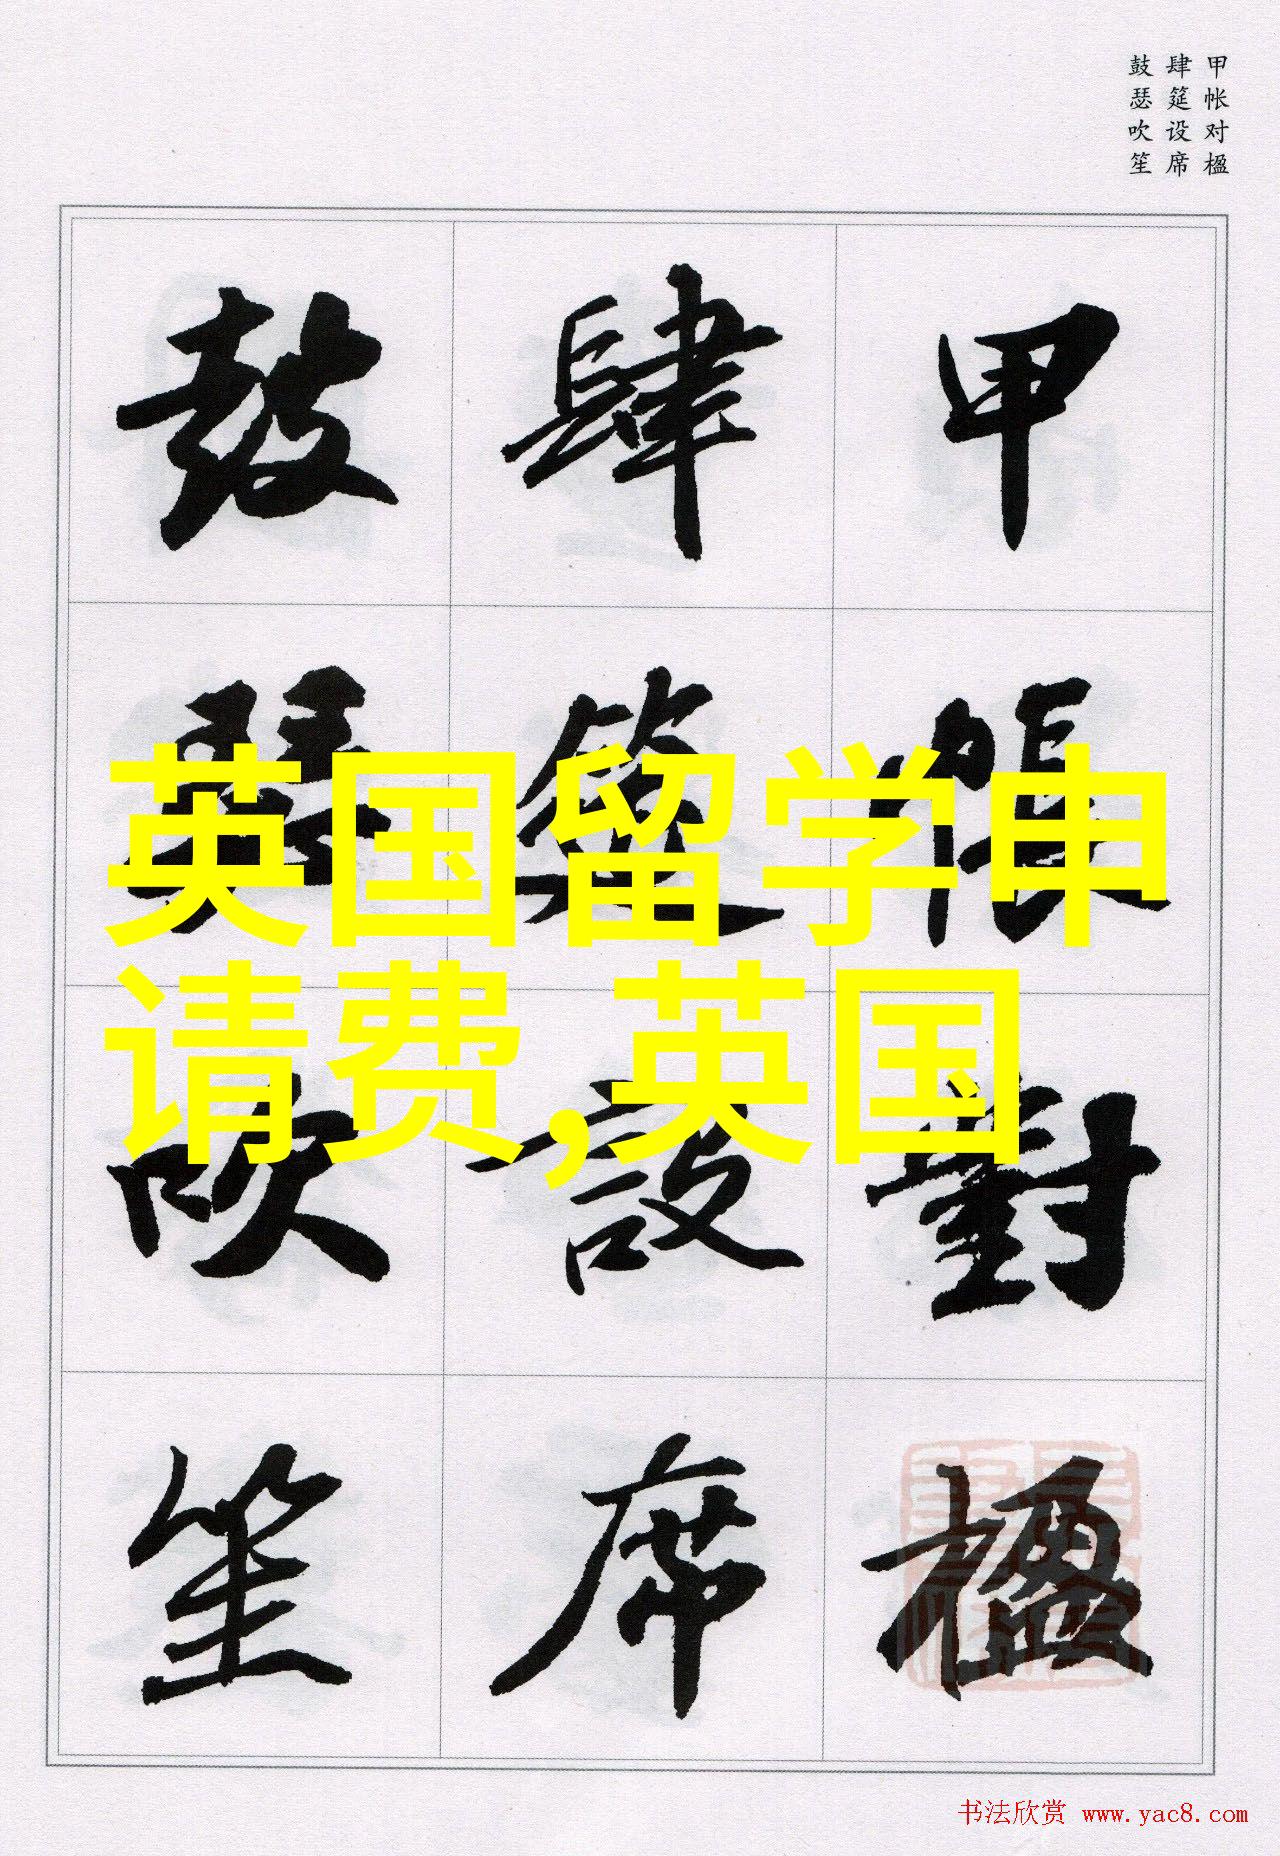 甲帐对楹
肆筵设席
鼓瑟吹笙
甲帳對楹
肆筵設席
鼓瑟吹笙
英国留学申
请费,英国
书法欣赏 www.yac8.com